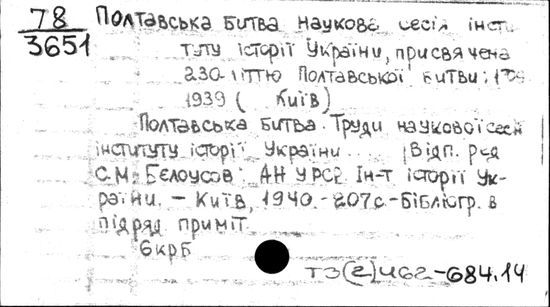 78
3651
Полтавська битва наукова сесія інсти
туту історії України, присвячена
230-літтю Полтавської битви:
1939 ( Київ)
Полтавська битва. Труди наукової сесії
інституту історії України. Відп. ред
С.М. Бєлоусов: АН УРСР Ін-т історії Ук-
раїни. – Київ, 1940.- 207с.-Бібліогр. в
підряд. приміт.
6крб
Т3(2)462-684.14